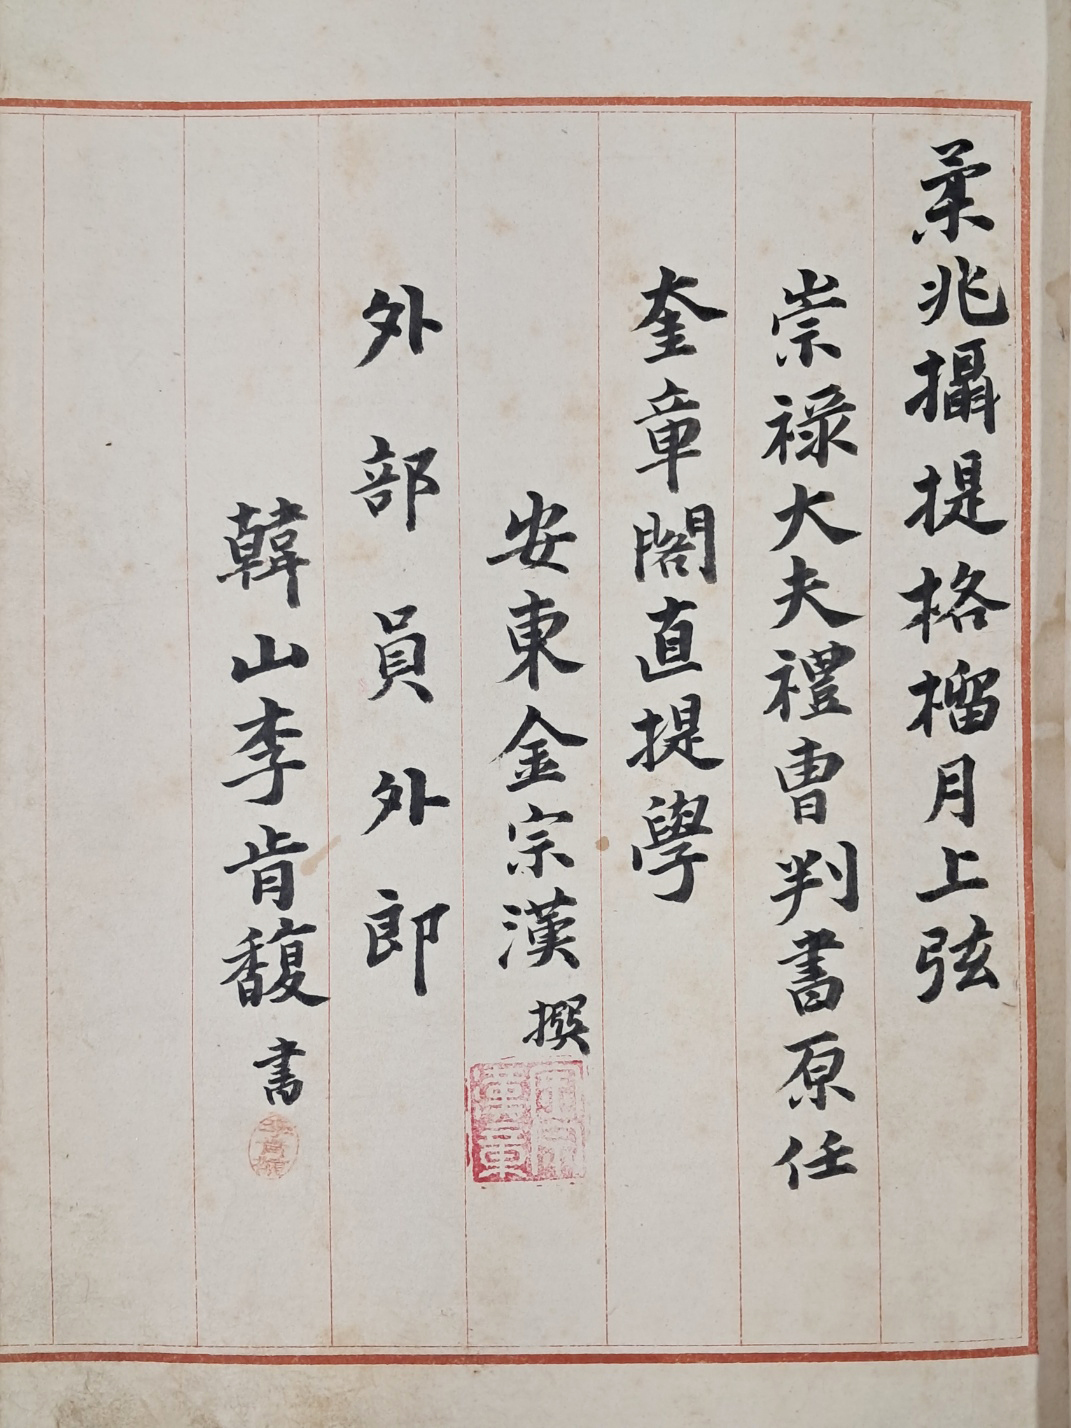 柔兆攝提格榴月上弦
崇祿大夫禮曺判書原任
奎章閣直提學
安東金宗漢撰
外部員外郎
韓山李肯馥書